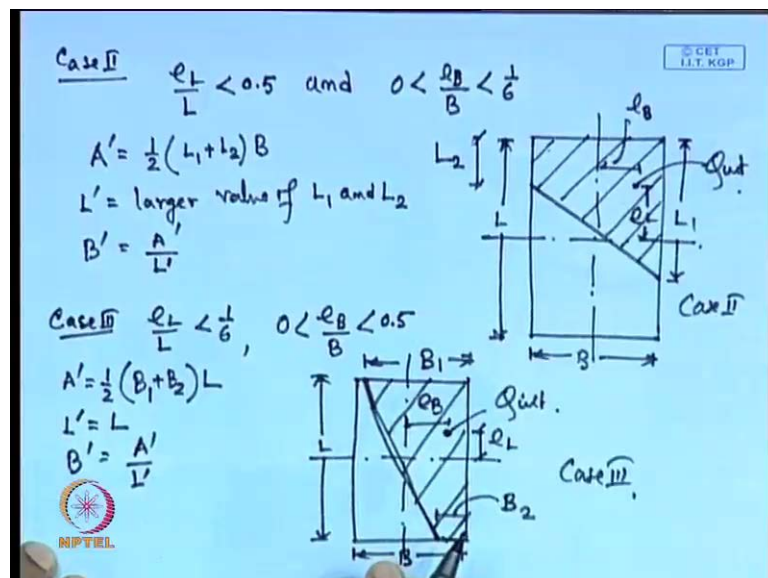 Case II
e_L/L < 0.5 and 0 < e_B/B < 1/6
A' = 1/2 (L1 + L2) B
L' = larger value of L1 and L2
B' = A'/L'
© CET
I.I.T. KGP
e_B
L2
L
Qult.
e_L
L1
B
Case II
Case III e_L/L < 1/6, 0 < e_B/B < 0.5
A' = 1/2 (B1 + B2) L
L' = L
B' = A'/L'
B1
e_B
Qult.
L
e_L
B2
B
Case III.
NPTEL